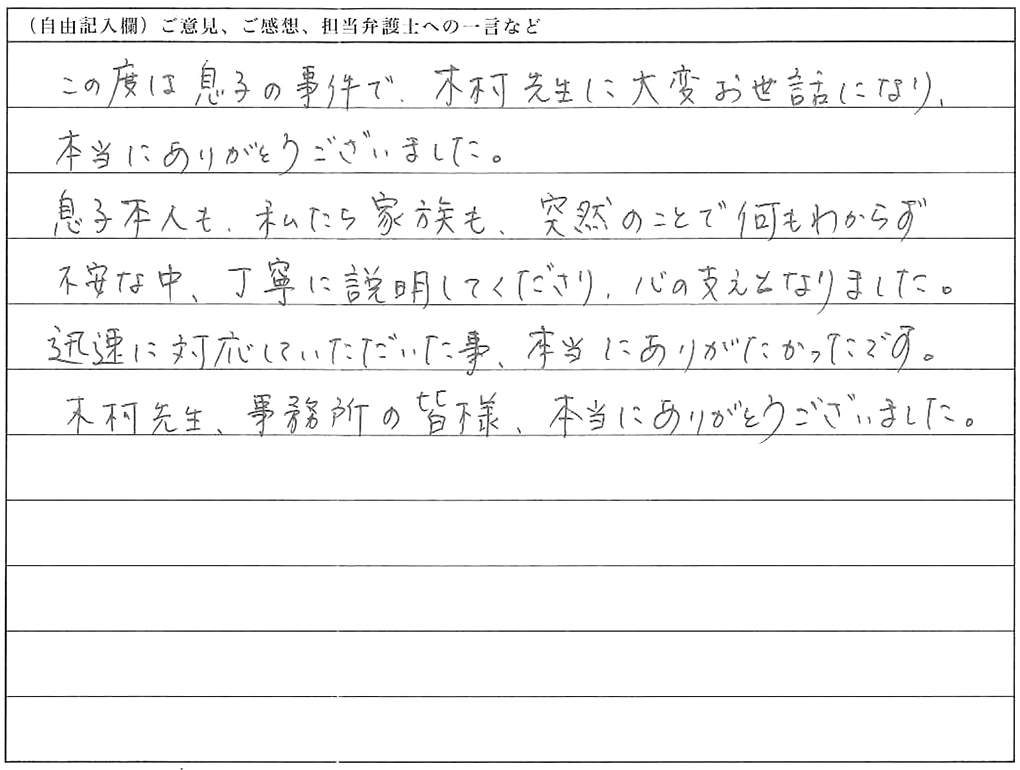 （自由記入欄）ご意見、ご感想、担当弁護士への一言など
この度は息子の事件で、木村先生に大変お世話になり、
本当にありがとうございました。
息子本人も、私たち家族も、突然のことで何もわからず
不安な中、丁寧に説明してくださり、心の支えとなりました。
迅速に対応していただいた事、本当にありがたかったです。
木村先生、事務所の皆様、本当にありがとうございました。